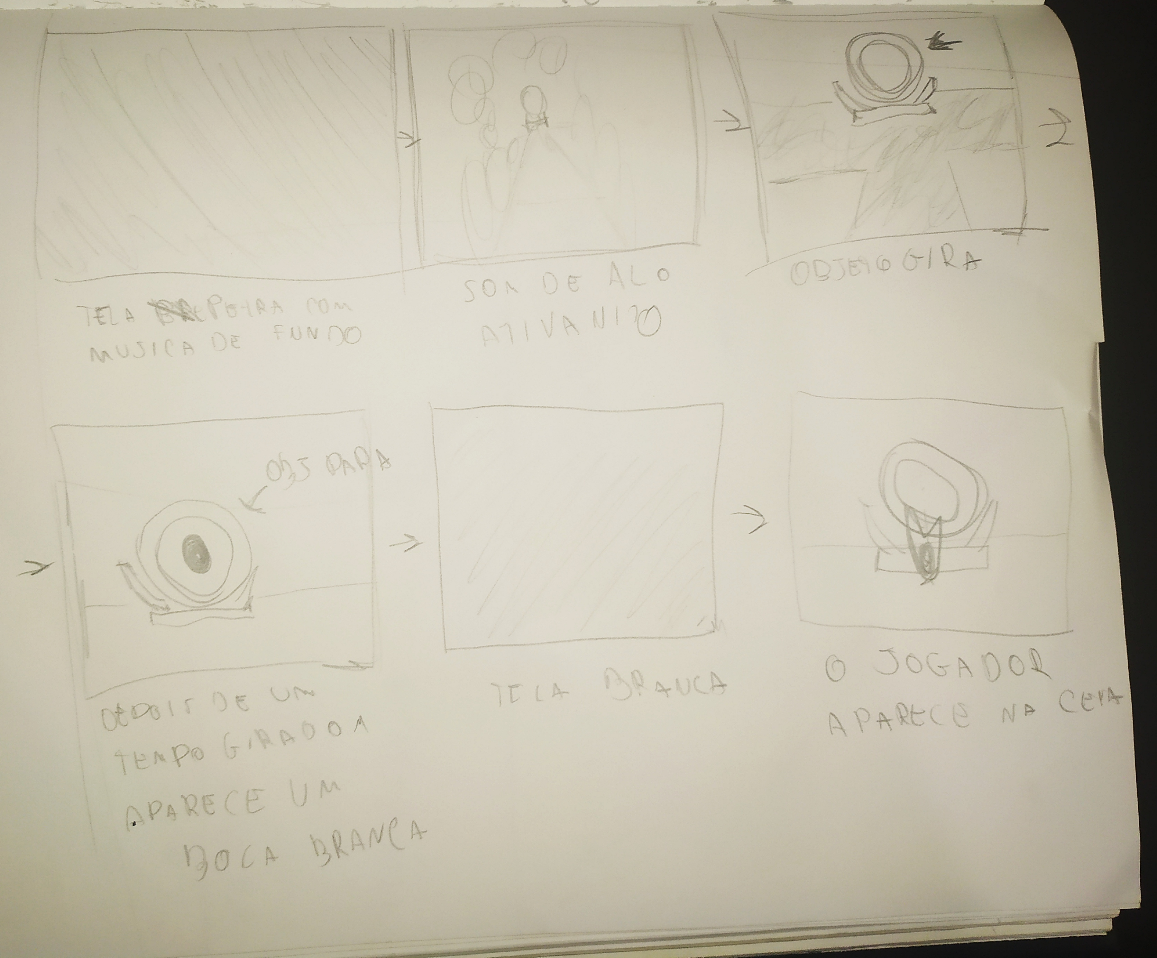 TELA PETRA COM
MUSICA DE FUNDO
SOM DE ALO
ATIVANDO
OBJETO GIRA
OBJ PARA
DEPOIS DE UM
TEMPO GIRADOM
APARECE UM
BOCA BRANCA
TELA BRANCA
O JOGADOR
APARECE NA CENA